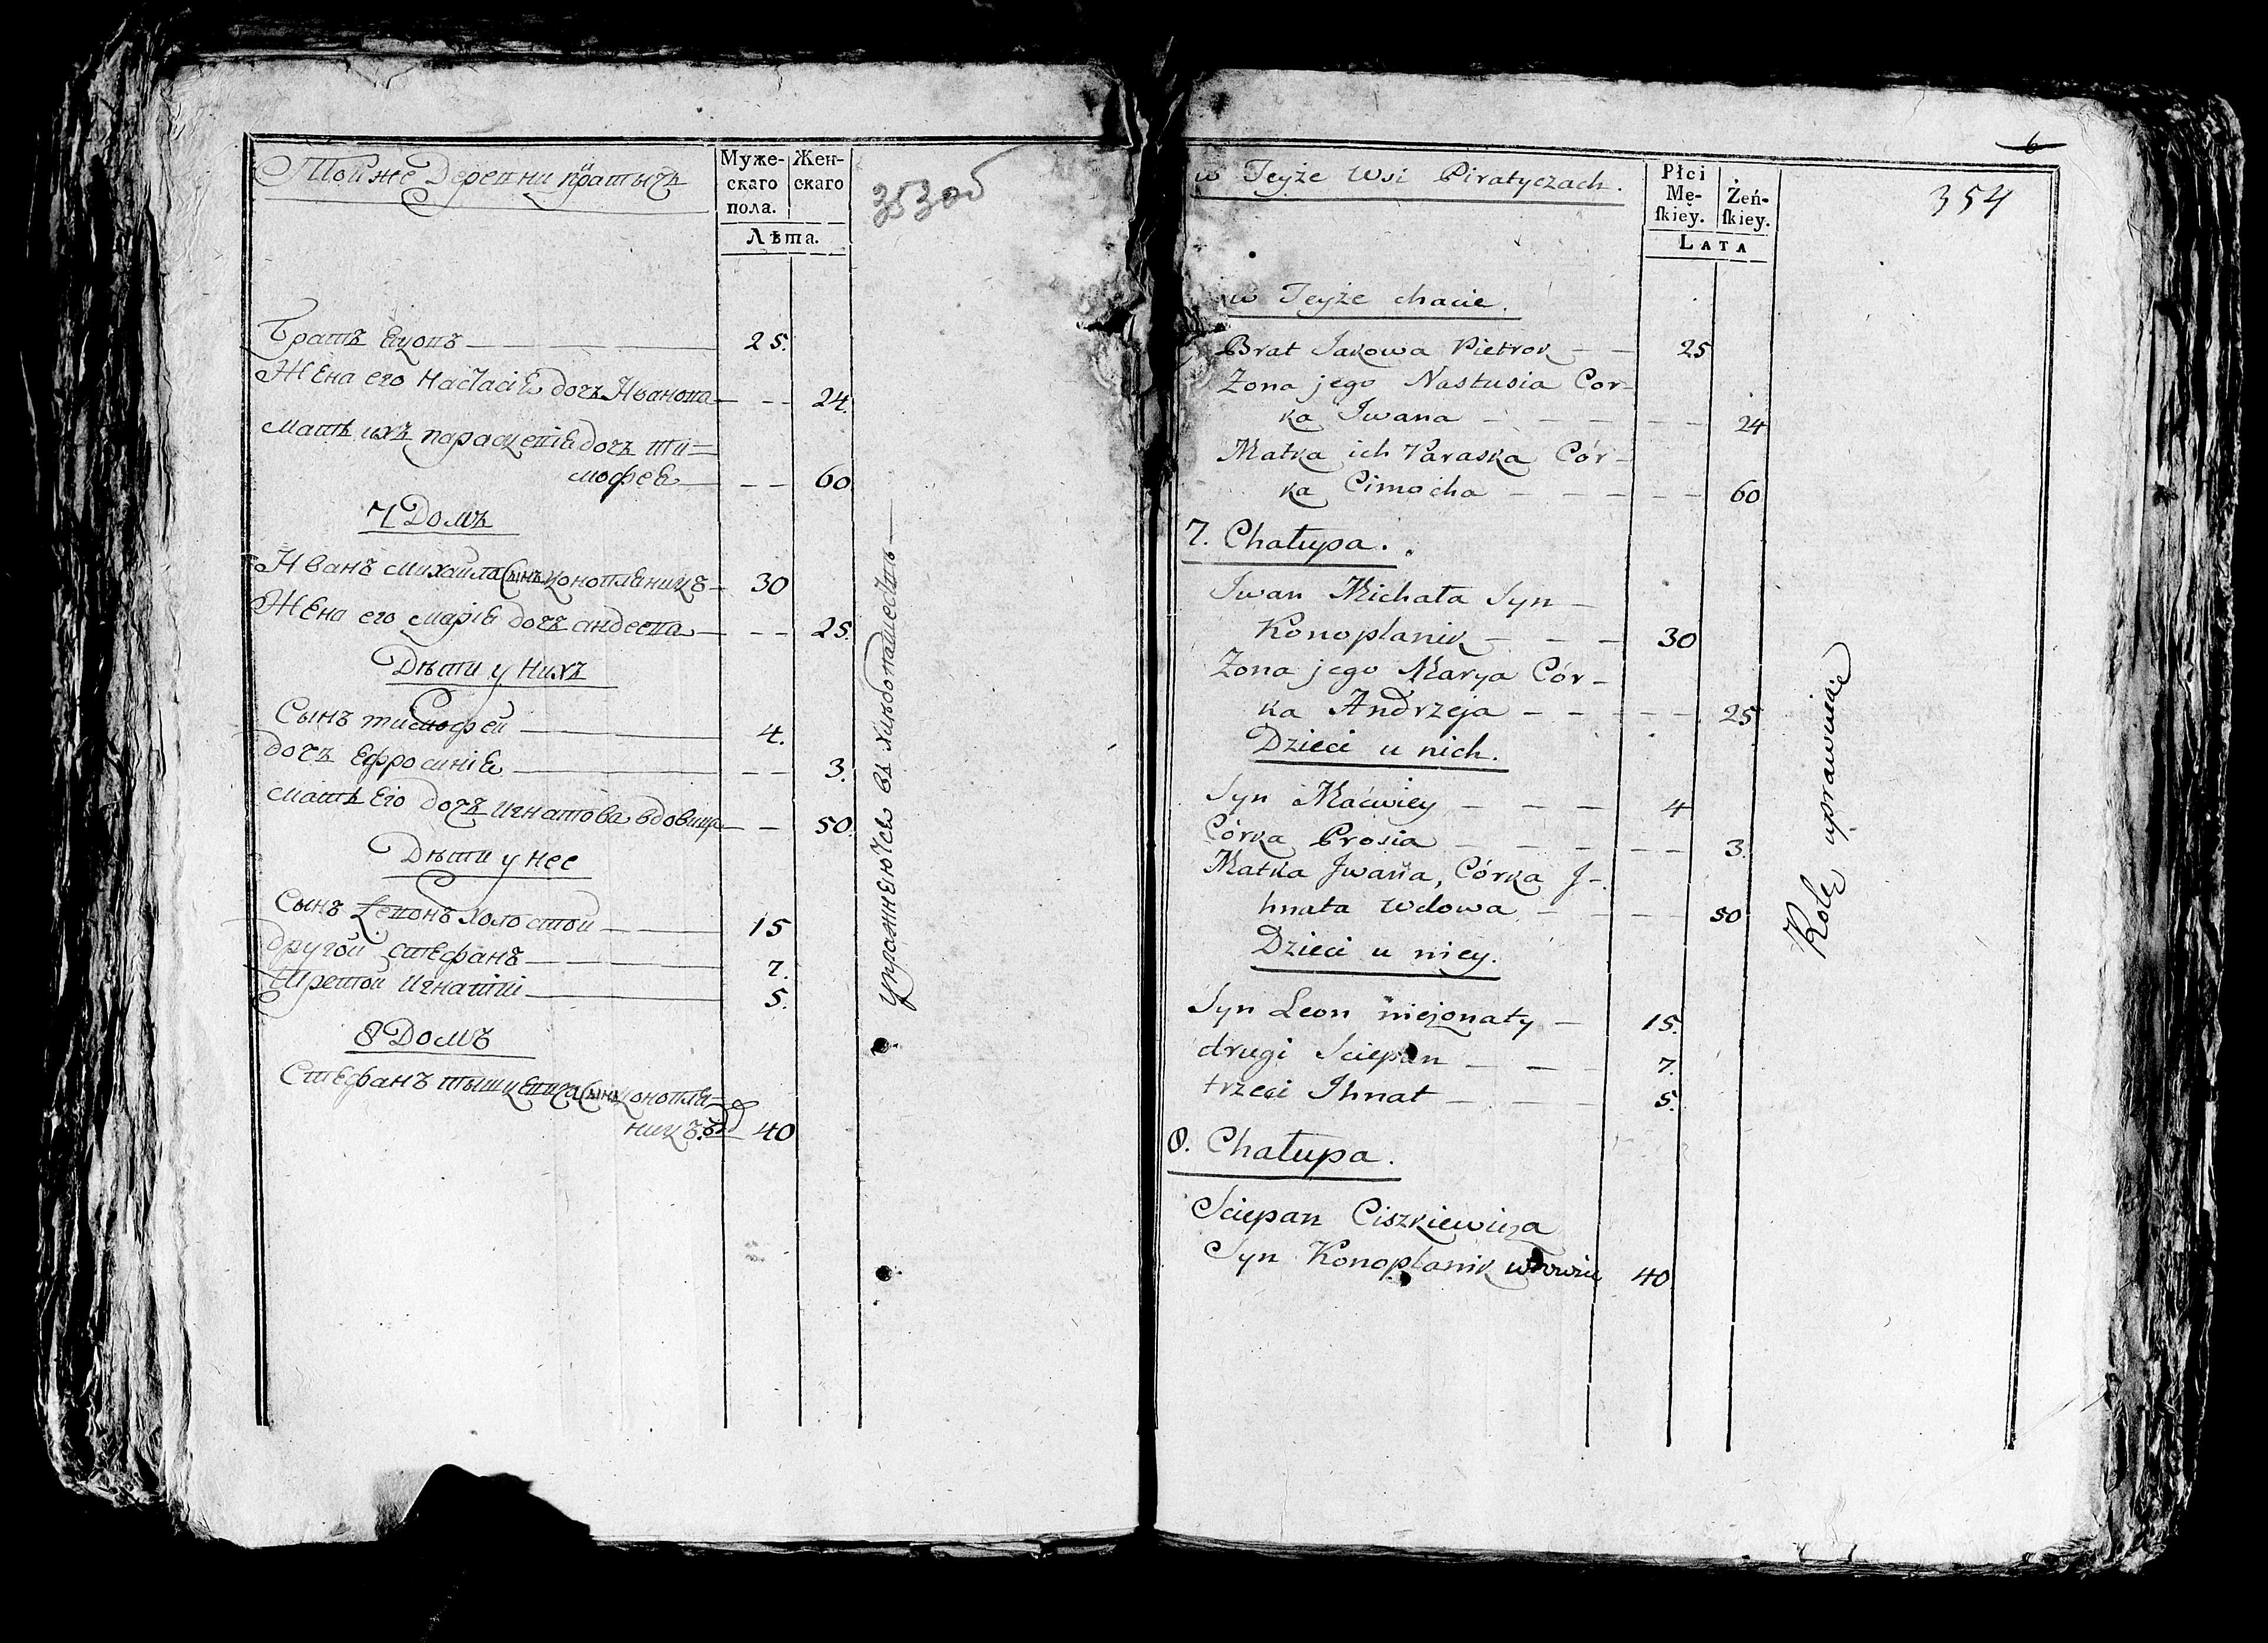 Той же деревни пиратычъ
Муже-
скаго
пола.
Жен-
скаго
Лѣта.
353об
Братъ
25.
Жена его Настасіѧ дочъ Иванова
24.
Мать ихъ парасцевіѧ дочъ ти=
мофеѧ
60
7 Домъ
Иванъ Михаила Сынъ конопляникъ
30
Жена его Маріѧ дочъ андеева
25.
Дѣти у нихъ
Сынъ
4.
дочъ Ефросиніѧ
3.
Мать его дочъ игнатова вдовица
50.
Дѣти у нее
Сынъ Левонъ холостой
15
другой стефанъ
7.
третой игнатій
5.
8 Домъ
Стефанъ тышкевича Сынъ конопля=
никъ.
40
упражнѧютсѧ въ хлѣбопашествѣ
6
w Teyże Wsi Piratyczach.
Płci
Mę-
ſkiey.
Żeń-
ſkiey.
LATA
354
w Teyże chacie.
Brat Jakowa Pietrok
25
Zona jego Nastusia Cor-
ka Iwana
24
Matka ich Paraska Cór-
ka Cimocha
60
7. Chałupa.
Iwan Michała Syn
Konoplanik
30
Zona jego Marya Cór-
ka Andrzeja
25
Dzieci u nich.
Syn Maćwiey
4
Córka Prosia
3.
Matka Iwana, Córka J-
hnata Wdowa
50
Dzieci u niey.
Syn Leon nieżonaty
15.
drugi Sciepan
7.
trzeci Ihnat
5.
8. Chałupa.
Sciepan Ciszkiewicza
Syn Konoplanik wdowiec
40
Rolę uprawuie